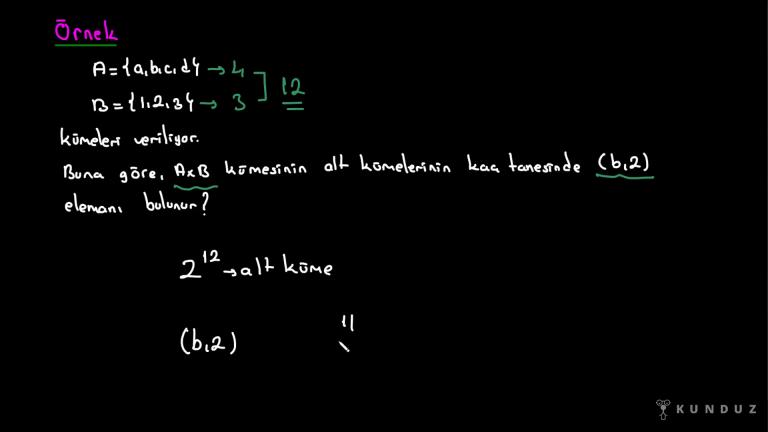 Örnek
A={a,b,c,d} → 4
B={1,2,3} → 3
12
kümeleri veriliyor.
Buna göre, AxB kümesinin alt kümelerinin kaç tanesinde (b,2)
elemanı bulunur?
2¹² → alt küme
(b,2) 11
KUNDUZ